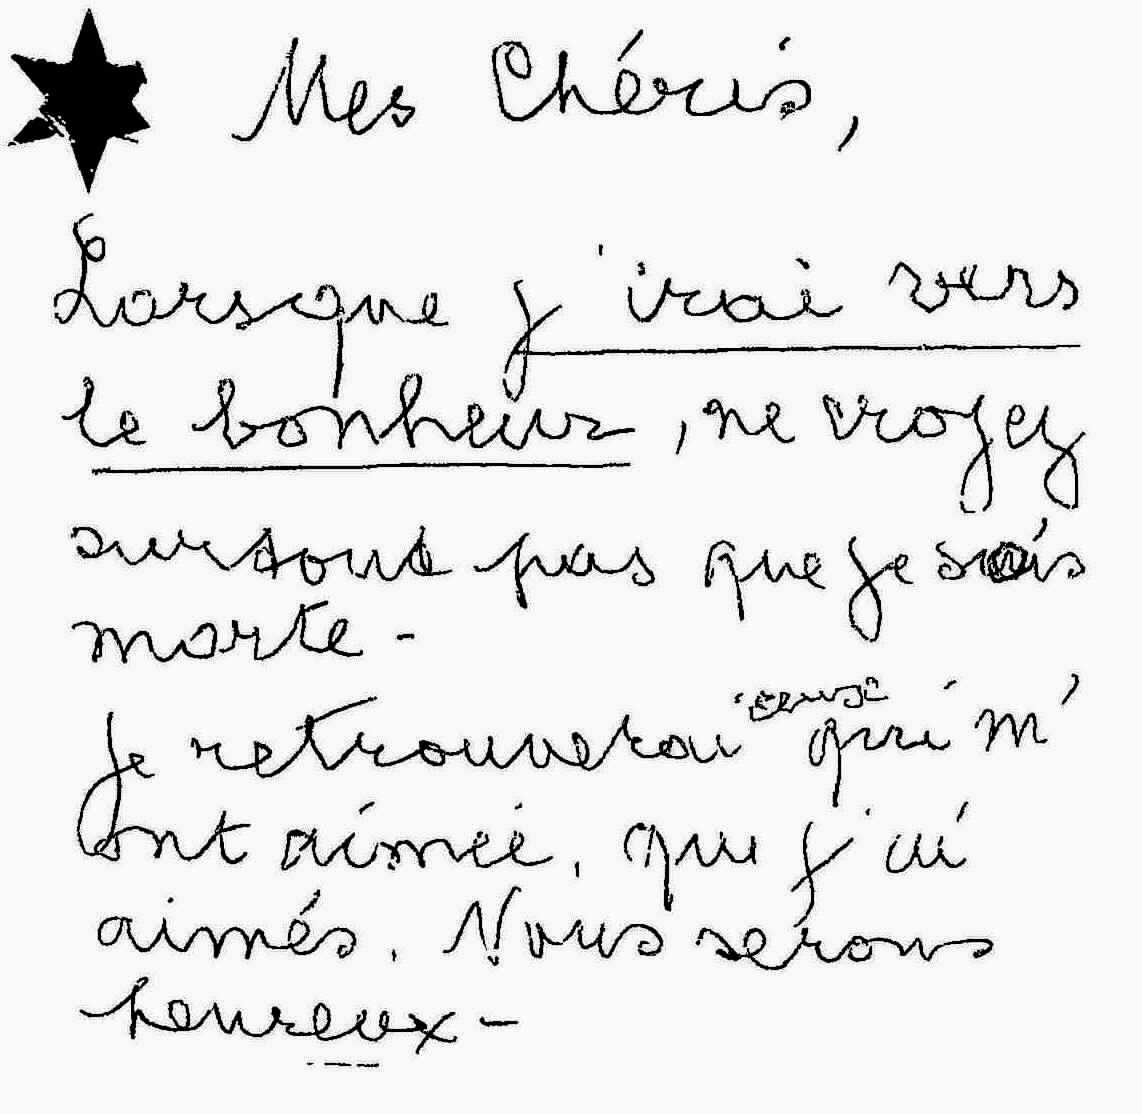 Mes Chéris,
Lorsque j'irai vers
le bonheur, ne croyez
surtout pas que je sois
morte -
Je retrouverai ceux qui m'
ont aimée, que j'ai
aimés. Nous serons
heureux -